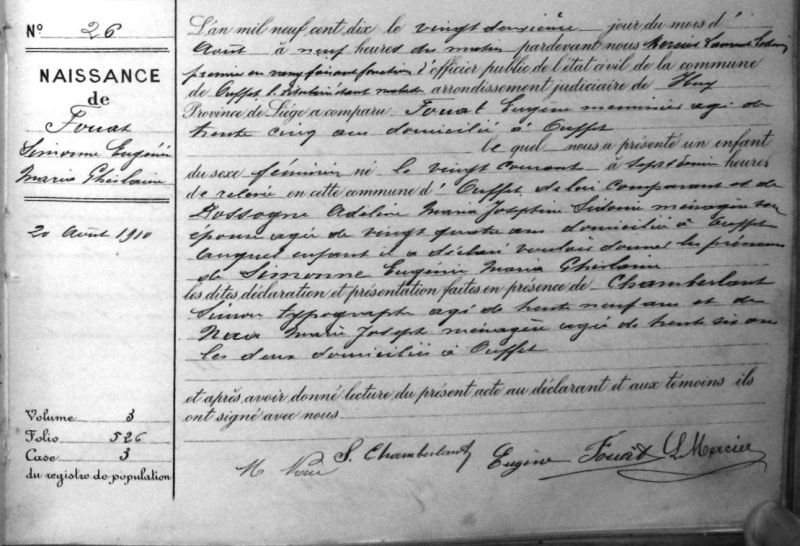 N° 26
NAISSANCE
de
Fouat
Simonne Eugénie
Maria Ghislaine
20 Août 1910
Volume 3
Folio 526
Case 3
du registre de population
L'an mil neuf cent dix le vingt deuxième jour du mois d'
Août à neuf heures du matin pardevant nous Mercier Laurent
faisant fonction d'officier public de l'état civil de la commune
de Ouffet arrondissement judiciaire de Huy
Province de Liège a comparu Fouat Eugène menuisier agé de
trente cinq ans domicilié à Ouffet
le quel nous a présenté un enfant
du sexe féminin né le vingt courant à sept heures
de relevée en cette commune d' Ouffet de lui comparant et de
Dossogne Adeline Maria Joséphine Sidonie ménagère son
épouse agée de vingt quatre ans domiciliée à Ouffet
auquel enfant il a déclaré vouloir donner les prénoms
de Simonne Eugénie Maria Ghislaine
les dites déclaration et présentation faites en présence de Chamberlant
Simon typographe agé de trente neuf ans et de
Marie Joseph ménagère agée de trente six ans
les deux domiciliés à Ouffet
et après avoir donné lecture du présent acte au déclarant et aux témoins ils
ont signé avec nous
M S. Chamberlant Eugène Fouat L Mercier